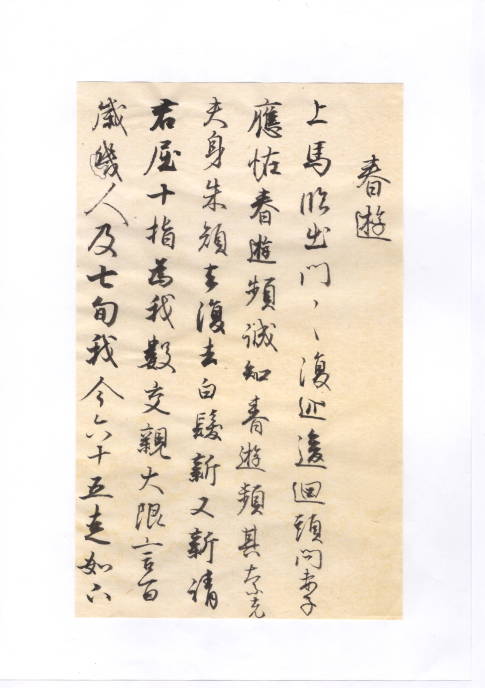 春遊
上馬臨出門〻〻復巡逡迴頭問妻子
應怪春遊頻誠知春遊頻其奈老
大身朱顏去復去白髮新又新請
君屈十指為我數交親大限言百
歲幾人及七旬我今六十五走如下